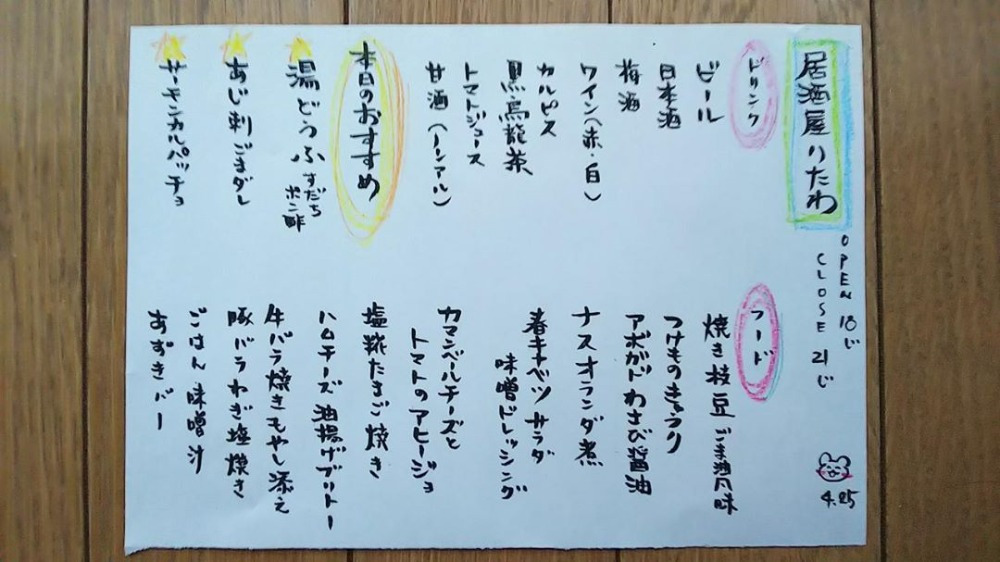 居酒屋りたわ
OPEN 18じ
CLOSE 21じ
ドリンク
ビール
日本酒
梅酒
ワイン(赤・白)
カルピス
黒烏龍茶
トマトジュース
甘酒(ノンアル)
本日のおすすめ
湯どうふ すだち
ポン酢
あじ刺ごまダレ
サーモンカルパッチョ
フード
焼き枝豆 ごま油風味
つけものきゅうり
アボガドわさび醤油
ナスオランダ煮
春キャベツサラダ
味噌ドレッシング
カマンベールチーズと
トマトのアヒージョ
塩糀たまご焼き
ハムチーズ油揚げブリトー
牛バラ焼きもやし添え
豚バラねぎ塩焼き
ごはん 味噌汁
あずきバー
4.25